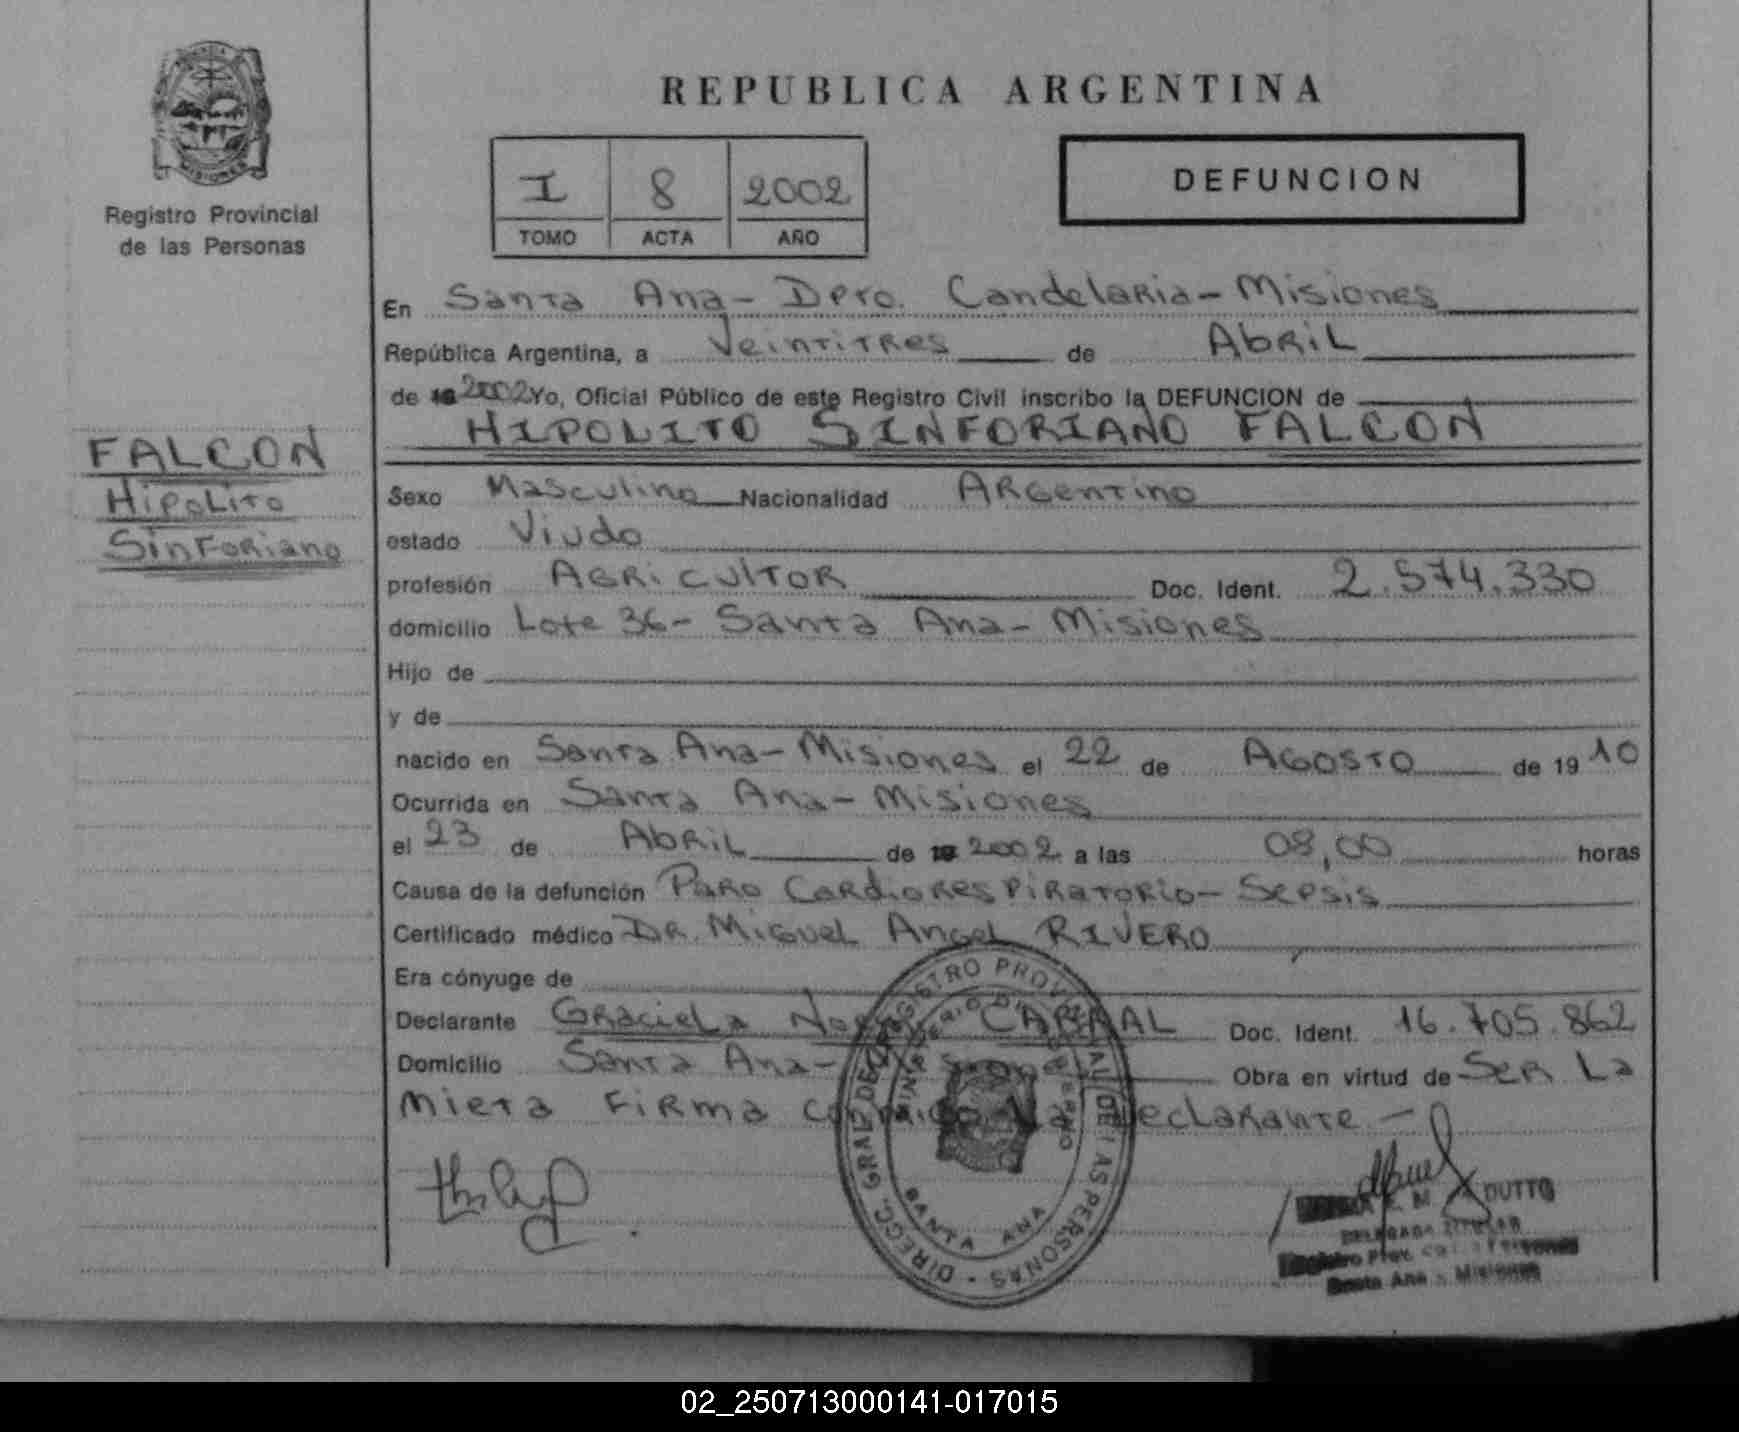 REPUBLICA ARGENTINA
MISIONES
Registro Provincial
de las Personas
I 8 2002
TOMO ACTA AÑO
DEFUNCION
En Santa Ana - Dpto. Candelaria - Misiones
República Argentina, a Veintitres de Abril
de 2002 Yo, Oficial Público de este Registro Civil inscribo la DEFUNCION de
HIPOLITO SINFORIANO FALCON
FALCON
Hipolito
Sinforiano
Sexo Masculino Nacionalidad Argentino
estado Viudo
profesión Agricultor Doc. Ident. 2.574.330
domicilio Lote 36 - Santa Ana - Misiones
Hijo de
y de
nacido en Santa Ana - Misiones el 22 de Agosto de 1910
Ocurrida en Santa Ana - Misiones
el 23 de Abril de 2002 a las 08,00 horas
Causa de la defunción Paro Cardiorespiratorio - Sepsis
Certificado médico Dr. Miguel Angel RIVERO
Era cónyuge de
Declarante Graciela CABRAL Doc. Ident. 16.705.862
Domicilio Santa Ana - Obra en virtud de Ser La
Nieta Firma conmigo La Declarante -
DIRECC. GRAL. DEL REGISTRO PROVINCIAL DE LAS PERSONAS
MINISTERIO DE GOBIERNO
SANTA ANA
DUTTO
DELEGADA TITULAR
Registro Prov. Personas
Santa Ana - Misiones
02_250713000141-017015